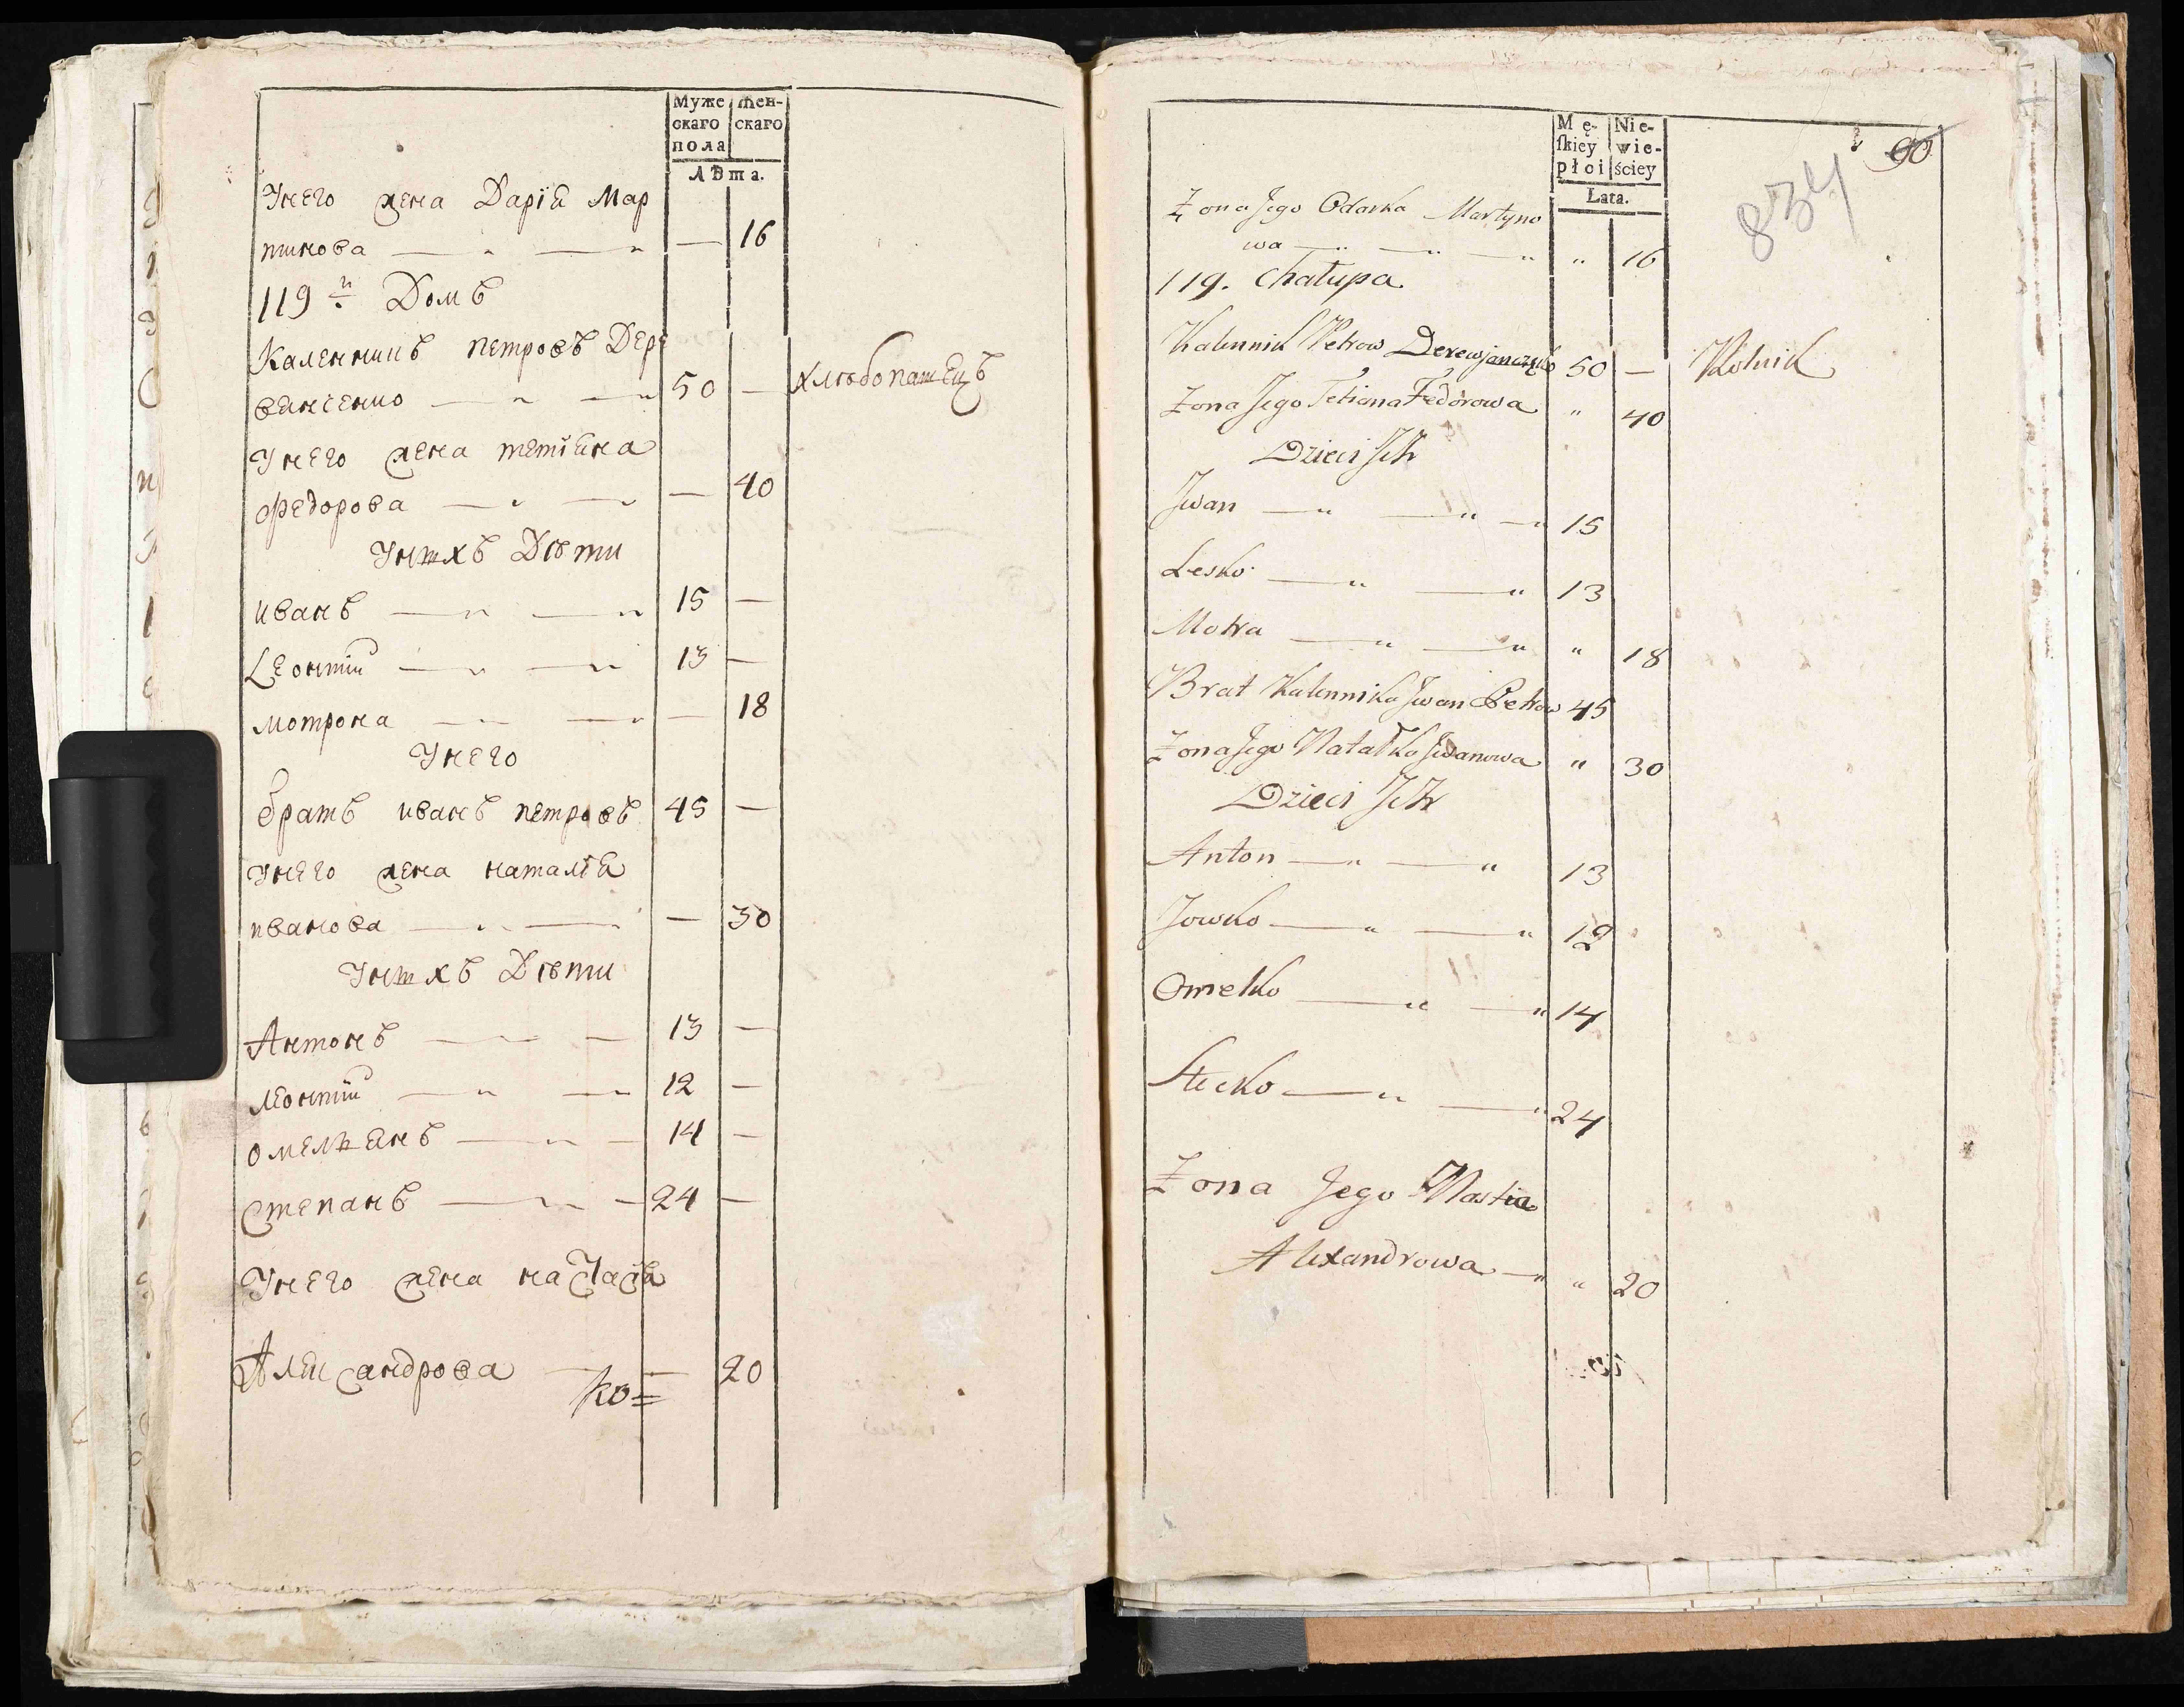 Муже
скаго
пола
Жен-
скаго
Лѣта.
Унего жена Дарія Мар
тинова — 16
119й Домъ
Каленникъ петровъ Дере
вянченко 50 — хлѣбопашецъ
Унего жена тетіяна
федорова — 40
Унихъ Дѣти
иванъ 15 —
Леонтій 13 —
мотрона — 18
Унего
братъ иванъ петровъ 45 —
Унего жена наталія
иванова — 30
Унихъ Дѣти
Антонъ 13 —
леонтій 12 —
омельянъ 14 —
Степанъ 24 —
Унего жена
Александрова — 20
ко=
Mę-
ſkiey
płoi
Nie-
wie-
ściey
Łata.
90
834
Zona Jego Odarka Martyno
wa " 16
119. Chałupa
Kalennik Petrow Derewjanczęko 50 — Rolnik
Zona Jego Tetiana Fedorowa " 40
Dzieci Ich
Jwan 15
Lesko 13
Motra " 18
Brat Kalennika Jwan Petrow 45
Zona Jego Natałka Jwanowa " 30
Dzieci Ich
Anton 13
Jowko 12
Omelko 14
Stecko 24
Zona Jego Nastia
Alexandrowa " 20